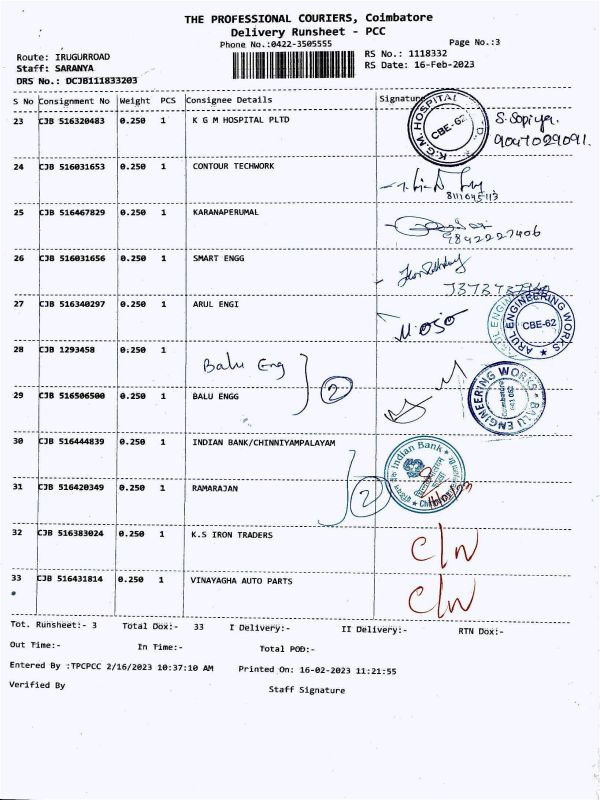 THE PROFESSIONAL COURIERS, Coimbatore
Delivery Runsheet - PCC
Phone No.:0422-3505555
Page No.:3
Route: IRUGURROAD
RS No.: 1118332
Staff: SARANYA
RS Date: 16-Feb-2023
DRS No.: DCJB111833203
S No Consignment No Weight PCS Consignee Details Signature
23 CJB 516320483 0.250 1 K G M HOSPITAL PLTD K.G.M. HOSPITAL CBE-62 S. Sopiya.
9047029091.
24 CJB 516031653 0.250 1 CONTOUR TECHWORK
8111045113
25 CJB 516467829 0.250 1 KARANAPERUMAL
9842227406
26 CJB 516031656 0.250 1 SMART ENGG
27 CJB 516340297 0.250 1 ARUL ENGI ARUL ENGINEERING WORKS CBE-62
28 CJB 1293458 0.250 1 Balu Eng
2
29 CJB 516506500 0.250 1 BALU ENGG BALU ENGINEERING WORKS Coimbatore 641 062
30 CJB 516444839 0.250 1 INDIAN BANK/CHINNIYAMPALAYAM Indian Bank
31 CJB 516420349 0.250 1 RAMARAJAN 2
32 CJB 516383024 0.250 1 K.S IRON TRADERS C/N
33 CJB 516431814 0.250 1 VINAYAGHA AUTO PARTS C/N
Tot. Runsheet:- 3 Total Dox:- 33 I Delivery:- II Delivery:- RTN Dox:-
Out Time:- In Time:- Total POD:-
Entered By :TPCPCC 2/16/2023 10:37:10 AM Printed On: 16-02-2023 11:21:55
Verified By
Staff Signature